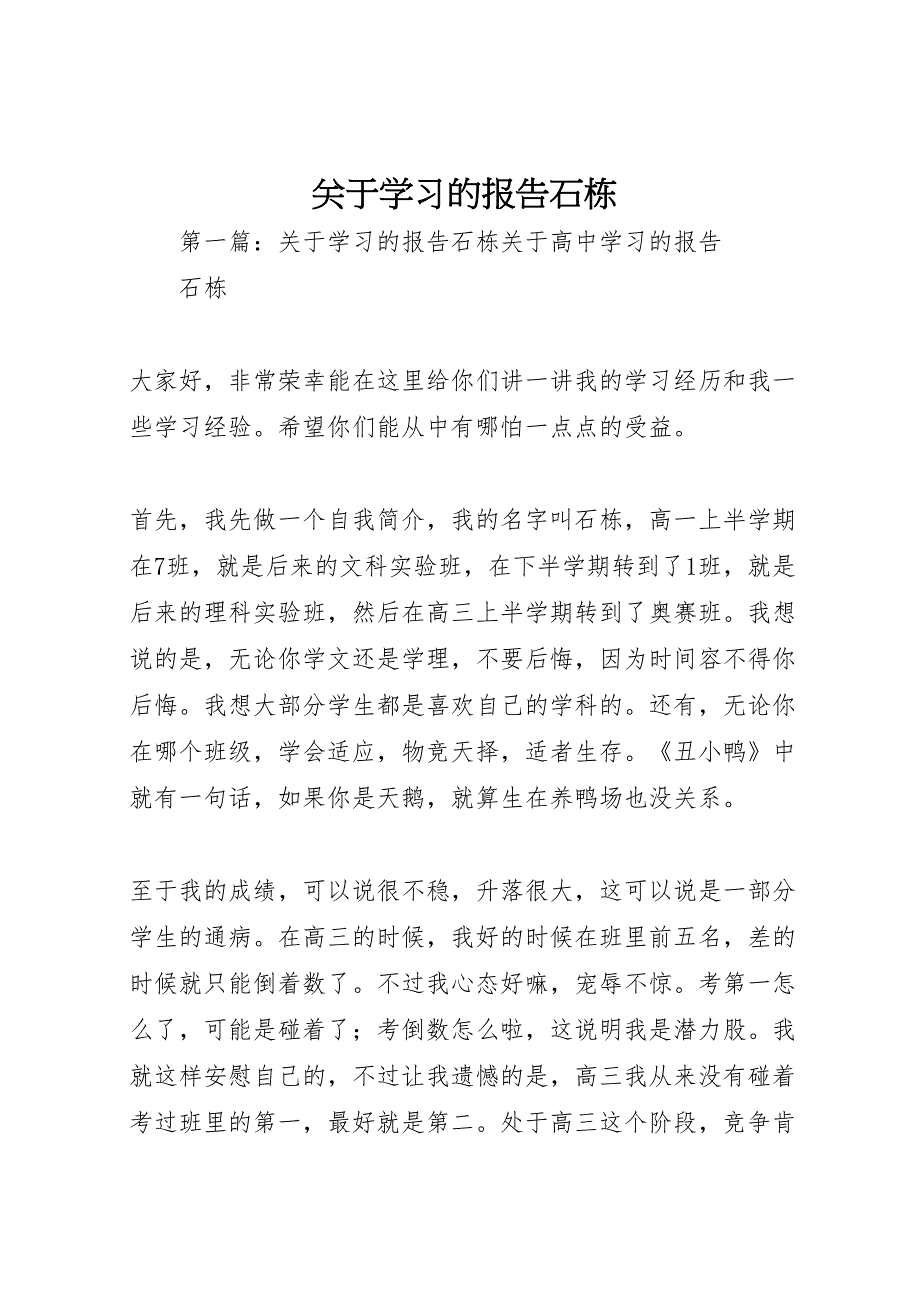 关于学习的报告石栋
第一篇：关于学习的报告石栋关于高中学习的报告
石栋
大家好，非常荣幸能在这里给你们讲一讲我的学习经历和我一
些学习经验。希望你们能从中有哪怕一点点的受益。
首先，我先做一个自我简介，我的名字叫石栋，高一上半学期
在7班，就是后来的文科实验班，在下半学期转到了1班，就是
后来的理科实验班，然后在高三上半学期转到了奥赛班。我想
说的是，无论你学文还是学理，不要后悔，因为时间容不得你
后悔。我想大部分学生都是喜欢自己的学科的。还有，无论你
在哪个班级，学会适应，物竞天择，适者生存。《丑小鸭》中
就有一句话，如果你是天鹅，就算生在养鸭场也没关系。
至于我的成绩，可以说很不稳，升落很大，这可以说是一部分
学生的通病。在高三的时候，我好的时候在班里前五名，差的
时候就只能倒着数了。不过我心态好嘛，宠辱不惊。考第一怎
么了，可能是碰着了；考倒数怎么啦，这说明我是潜力股。我
就这样安慰自己的，不过让我遗憾的是，高三我从来没有碰着
考过班里的第一，最好就是第二。处于高三这个阶段，竞争肯